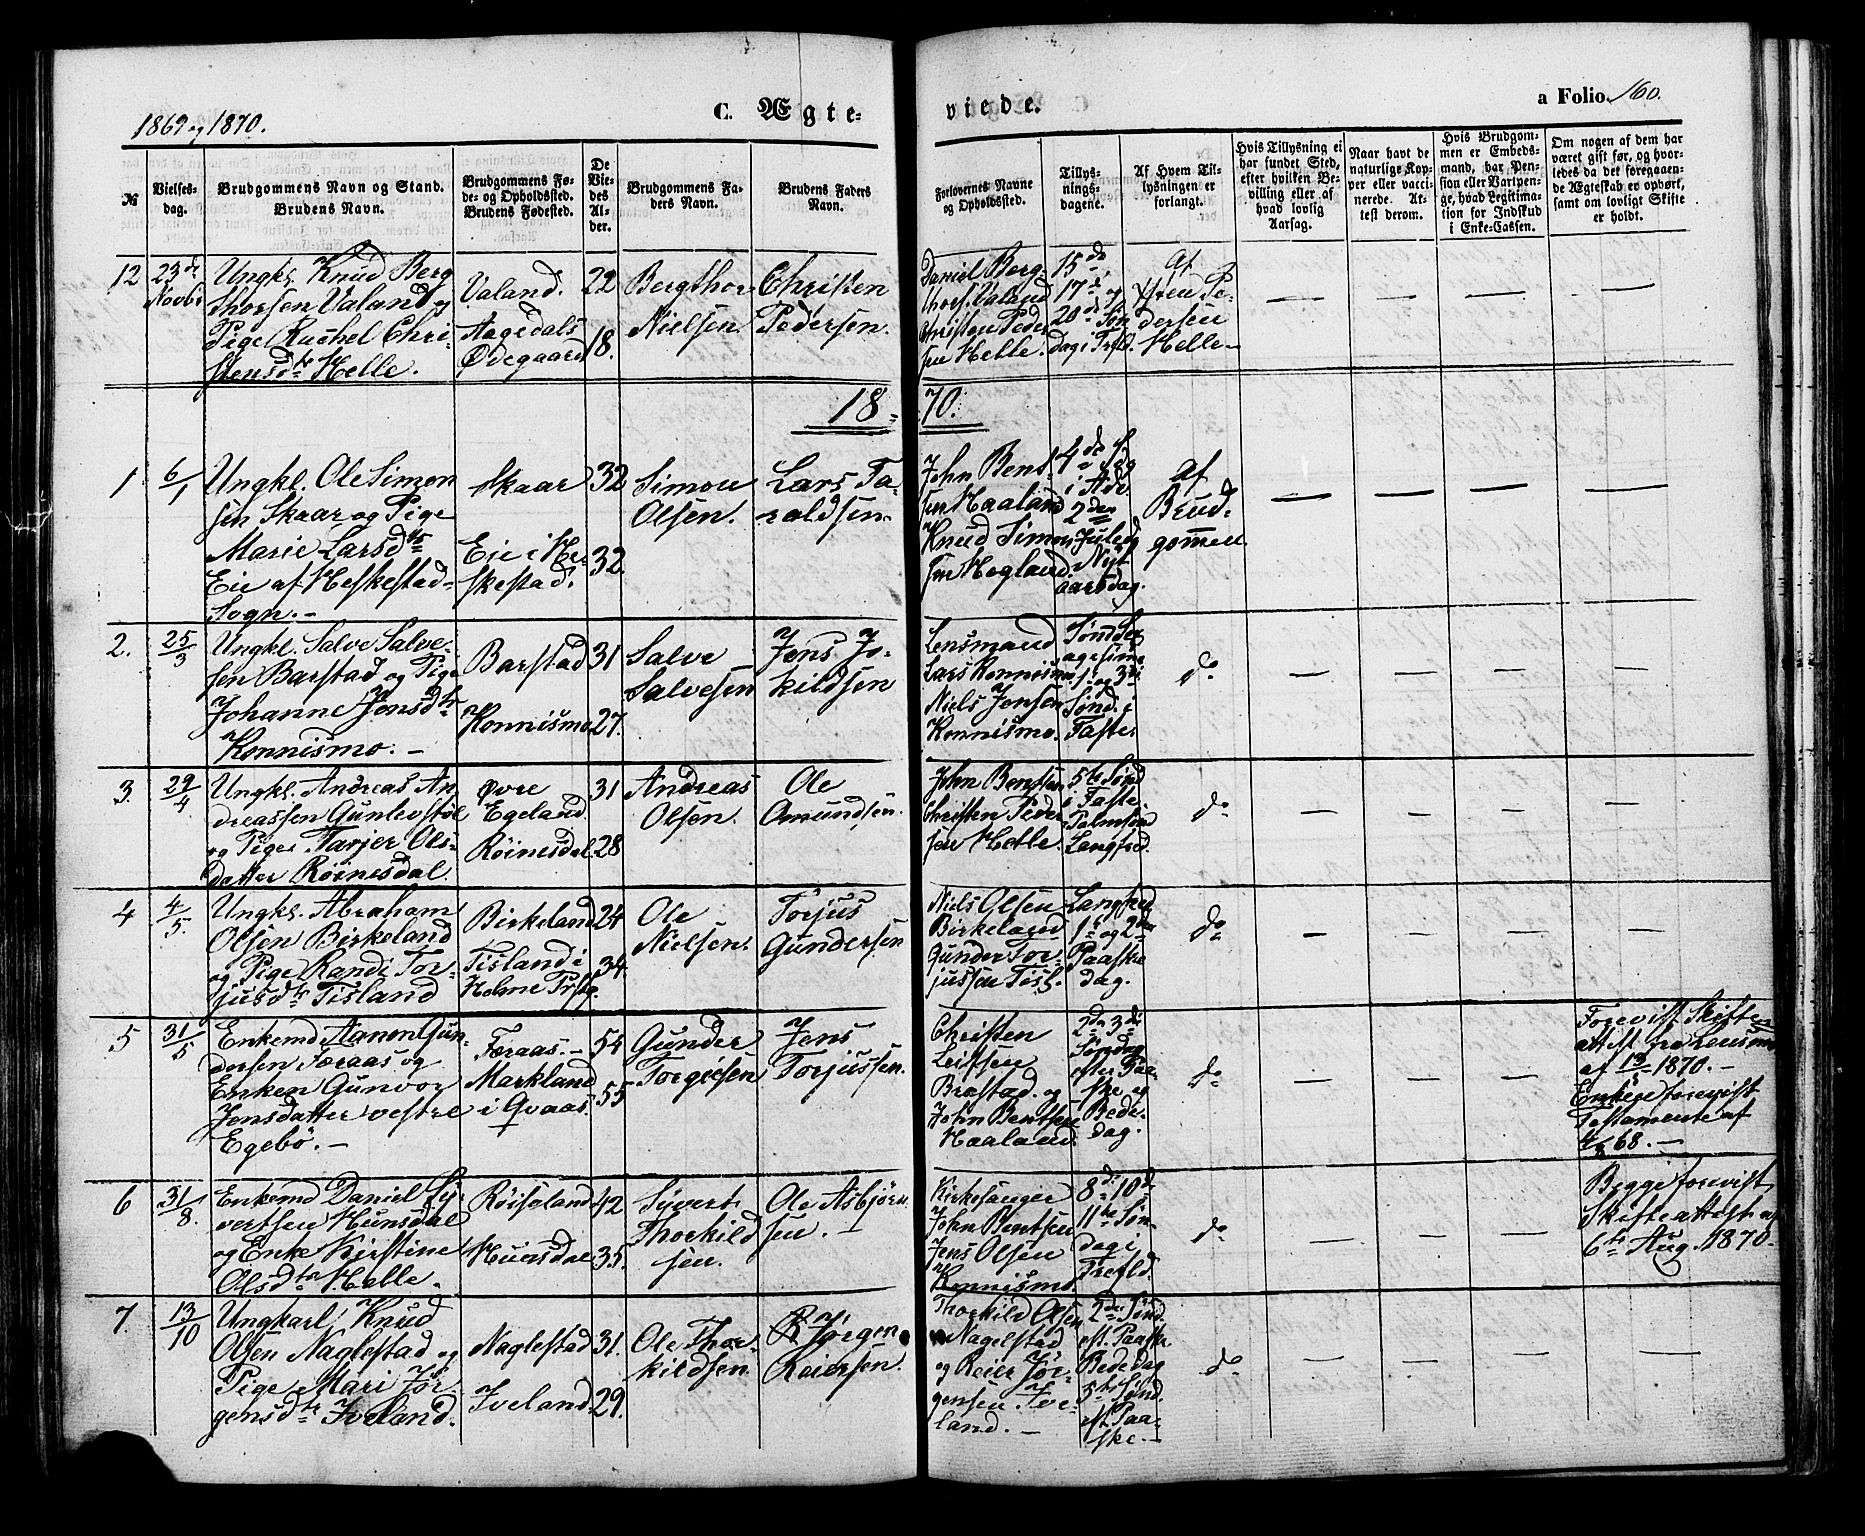 1869 og 1870.
C. Ægte-
viede.
a Folio. 160.
№
Vielses-
dag.
Brudgommens Navn og Stand.
Brudens Navn.
Brudgommens Fø-
de- og Opholdssted.
Brudens Fødested.
De
Vie-
des
Al-
der.
Brudgommens Fa-
ders Navn.
Brudens Faders
Navn.
Forlovernes Navne
og Opholdssted.
Tillys-
nings-
dagene.
Af Hvem Til-
lysningen er
forlangt.
Hvis Tillysning ei
har fundet Sted,
efter hvilken Be-
villing eller af
hvad lovlig
Aarsag.
Naar havt de
naturlige Kop-
per eller vacci-
nerede. At-
test derom.
Hvis Brudgom-
men er Embeds-
mand, har Pen-
sion eller Vartpen-
ge, hvad Legitima-
tion for Indskud
i Enke-Cassen.
Om nogen af dem har
været gift før, og hvor-
ledes da det foregaaen-
de Ægteskab er ophørt,
samt om lovligt Skifte
er holdt.
12
23de
Novbr
Ungk. Knud Berg
thorsen Valand og
Pige Rachel Chri-
stensdtr Helle.
Valand.
Aagedals
Ødegaard
22
18.
Bergthor
Nielsen
Christen
Pedersen.
Daniel Berg-
thors. Valand
Christen Peder
sen Helle.
15de,
17de og
20de Søn
dag i Trefld.
Af
Christen Pe-
dersen
Helle
18-
70.
1
6/1
Ungk. Ole Simon
sen Skaar og Pige
Marie Larsdtr
Eie af Heskestad-
Sogn.-
Skaar
Eie i He-
skestad.
32
32.
Simon
Olsen.
Lars Ta-
raldsen.
John Bent
sen Haaland
Knud Simon
sen Hogland.
4de S
i Adv.
2den
Juledg
Nyt
aarsdag.
Af
Brud-
gommen
2.
25/3
Ungk. Salve Salve-
sen Barstad og Pige
Johanne Jensdtr
Konnismo.-
Barstad
Konnismo
31
27.
Salve
Salvesen
Jens Jo-
kildsen
Lensmand
Lars Konnismo
Niels Jensen
Konnismo.
Sønd. Sex
agesima
1. og 3die
Sønd. i
Faste.
do
3.
29/4
Ungk. Andreas An
dreassen Gunlevstøl
og Pige Tarjer Ols-
datter Røinesdal.
Øvre
Egeland.
Røinesdal.
31
28
Andreas
Olsen.
Ole
Omundsen.
John Bentsen
Christen Peder
sen Helle.
5te Sønd
i Faste.
Palmsønd
Langfred.
do
4
4/5
Ungk. Abraham
Olsen Birkeland
og Pige Randi Tor-
jusdtr Tisland
Birkeland
Tisland i
Holme Prstg.
24
34.
Ole
Nielsen.
Torjus
Gundersen.
Niels Olsen
Birkeland
Gunder Tor-
jussen Tisl.
Langfred
1ste og 2den
Paaske
dag.
do
5
31/5
Enkemd Aanon Gun-
dersen Færaas og
Enken Gunvor
Jensdatter vestre
Egebø.-
Færaas.-
Markland
i Qvaas
54
55
Gunder
Torgiesen
Jens
Torjussen.
Christen
Leifsen
Brastad og
John Bentsen
Haaland.
2den 3die
Søndag
efter Paa-
ske og
Bede-
dag.
do
Forevist Skifte
attest fra Lensmd
af 1870.-
Enken forevist
Testamente af
4/8 68.-
6
31/8.
Enkemd Daniel Sy-
vertsen Hunsdal
og Enke Kirstine
Olsdtr Helle.
Røiseland
Hunsdal
42
35.
Syvert
Thorkild
sen.
Ole Asbjørn
sen.-
Kirkesanger
John Bentsen
Jens Olsen
Konnismo.
8de 10de
11te Søn-
dag i
Trefld.
do
Begge forevist
Skifteattest af
6te Aug. 1870.
7.
13/10
Ungkarl Knud
Olsen Naglestad og
Pige Mari Jør-
gensdtr Iveland.
Naglestad
Iveland
31.
29.
Ole Thor-
kildsen
Jørgen
Reiersen.
Thorkild Olsen
Nagelstad
og Reier Jør-
gensen Ive-
land.-
2den Sønd.
eft. Paaske
Bededag
5te Sønd.
eft. Paa-
ske.-
do